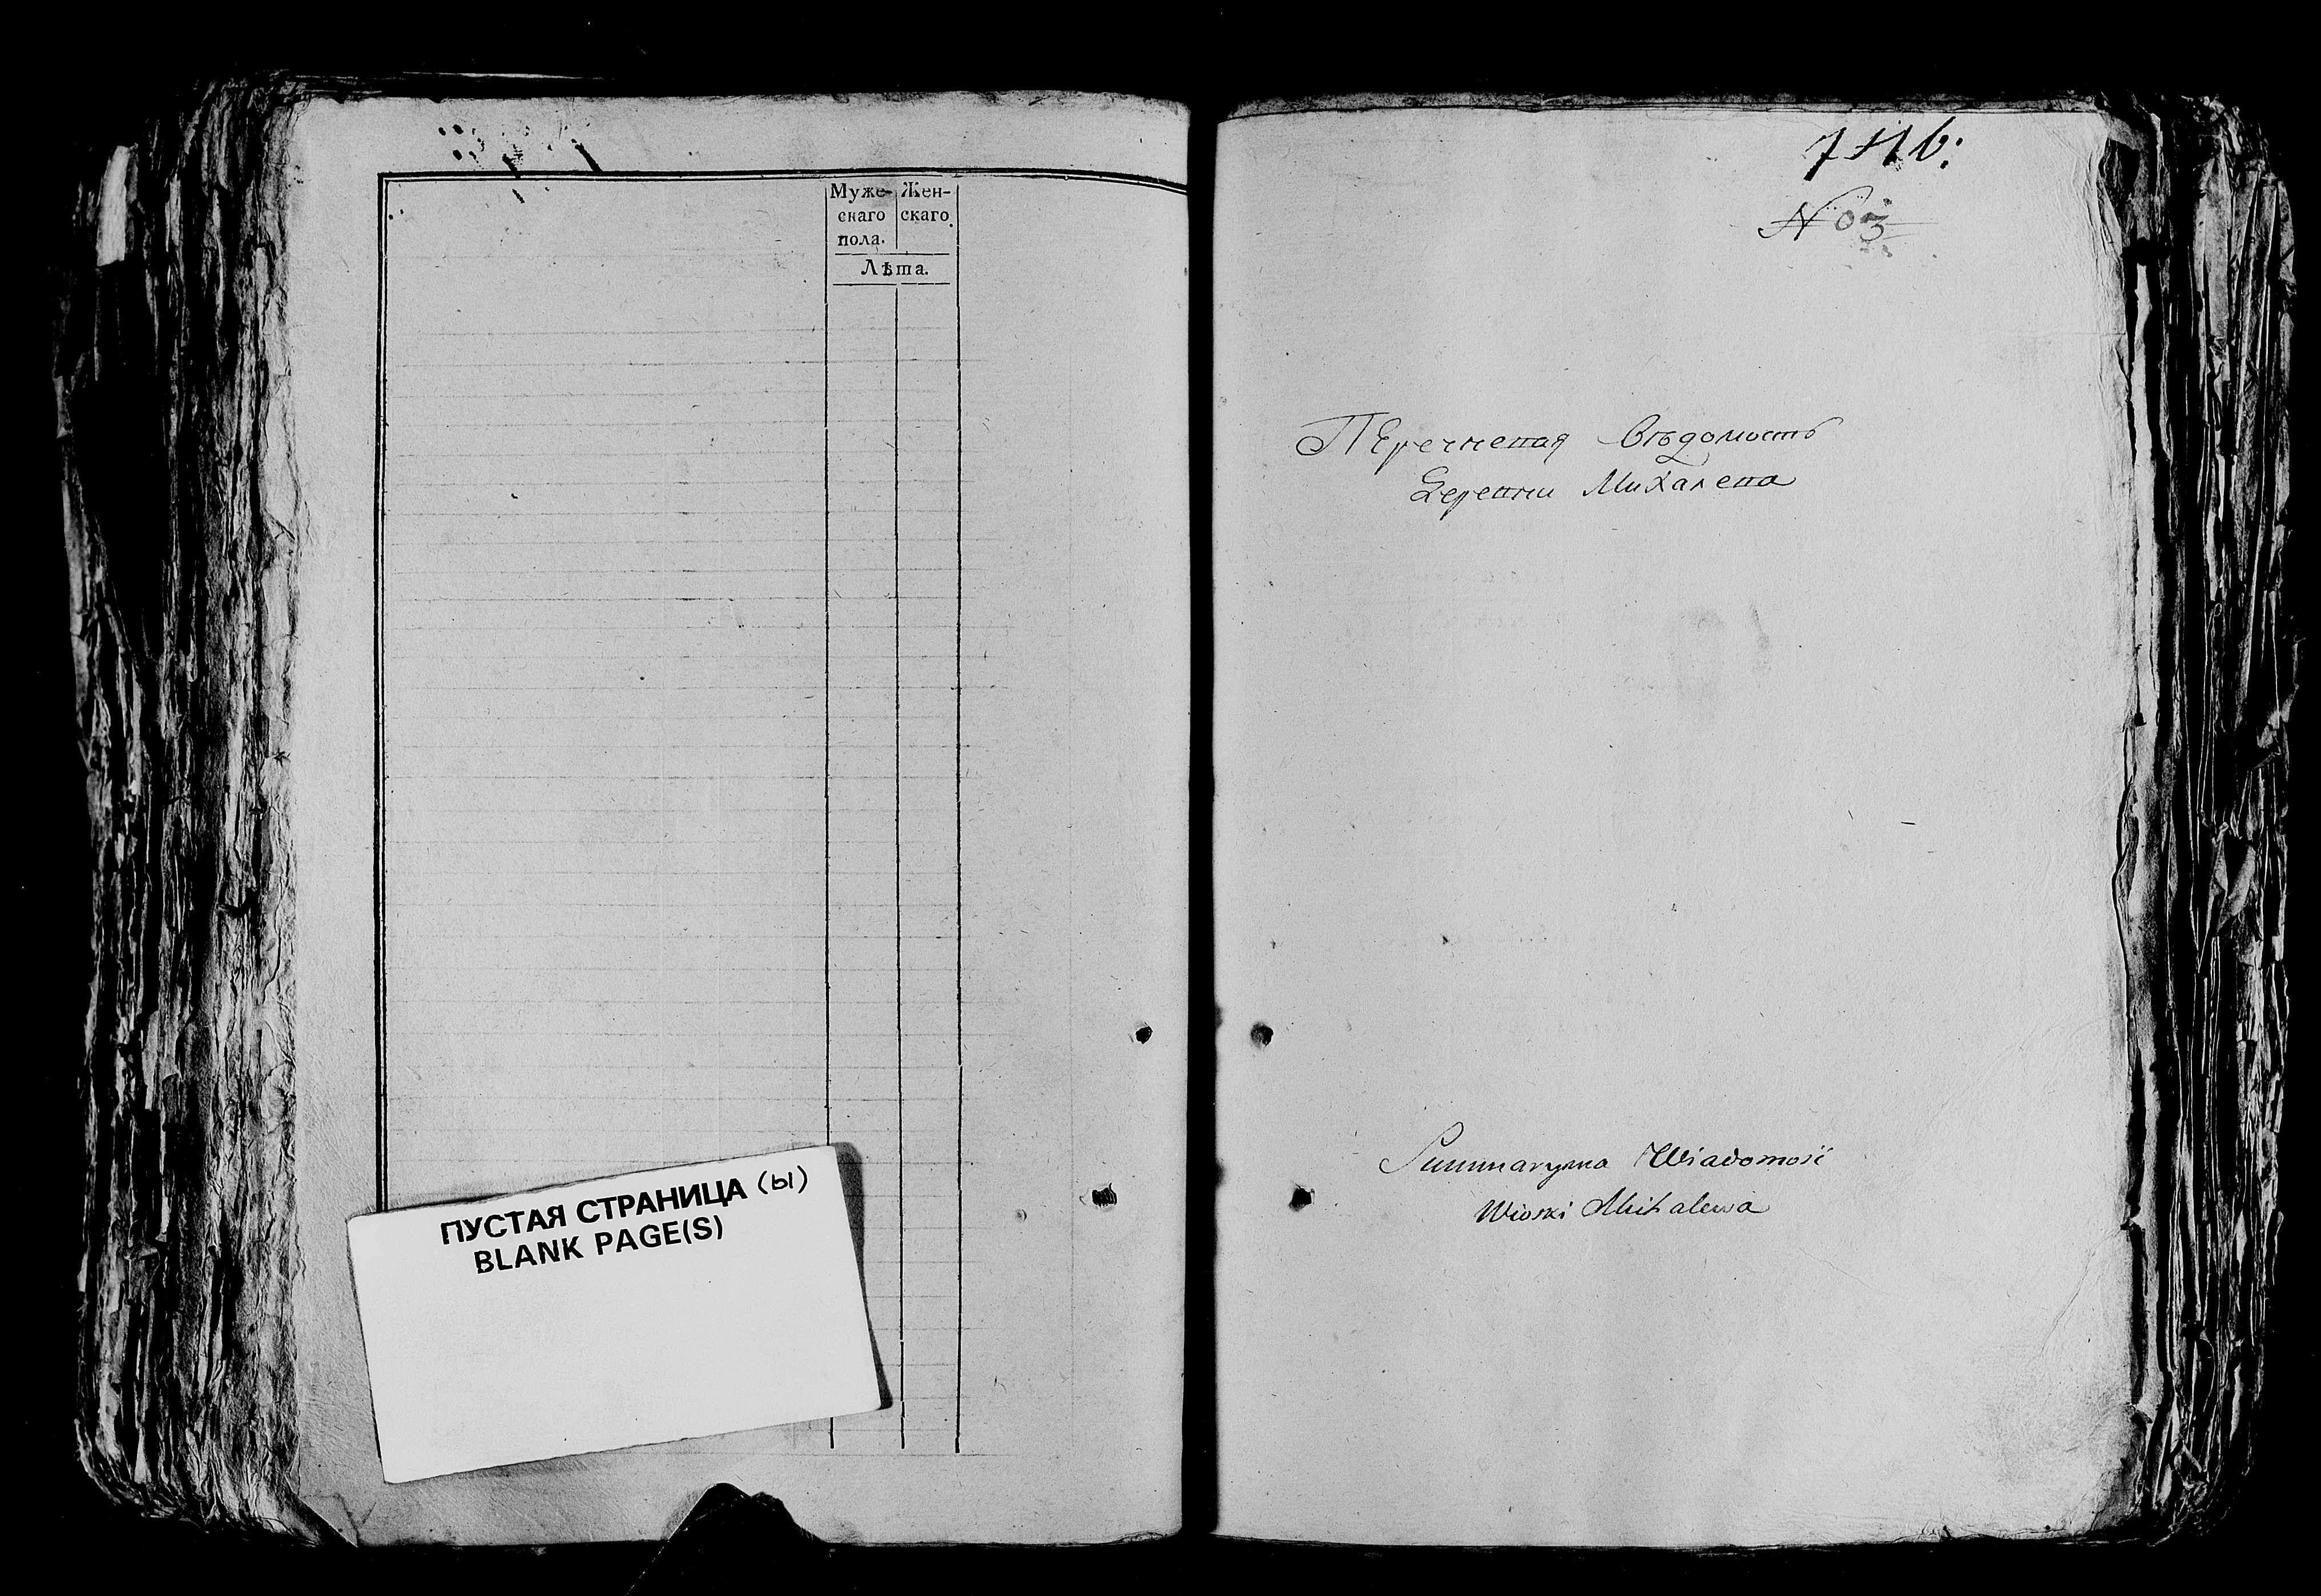 Муже- Жен-
скаго скаго
пола.
Лѣта.
ПУСТАЯ СТРАНИЦА (ы)
BLANK PAGE(S)
No 3
Перечневая Вѣдомость
Деревни Михалева
Summaryczna Wiadomość
Wioski Mihalewa